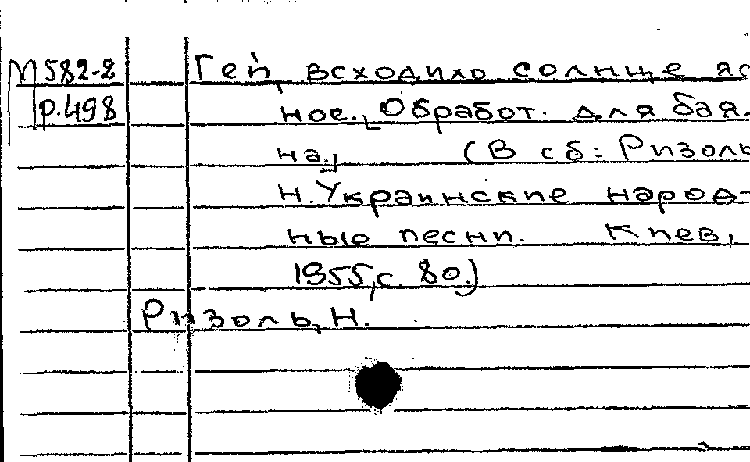 М 582-2 Гей, всходило солнце яс
Р.498 ное. [Обработ. для бая.
на.] (В сб: Ризоль
Н. Украинские народ-
ные песни. Киев,
1955, с. 80.)
Ризоль, Н.